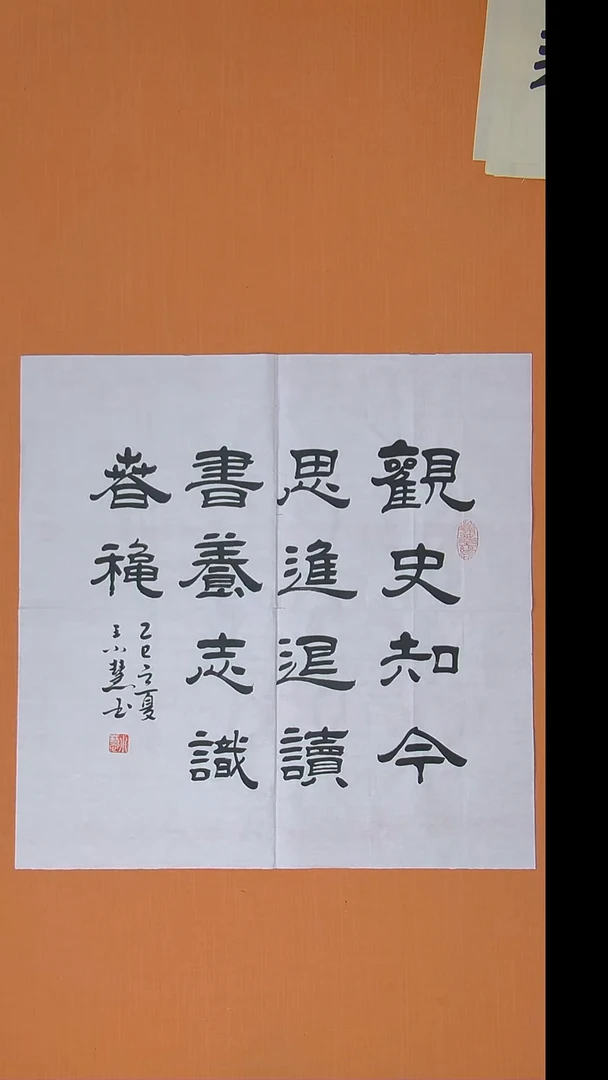 觀史知今
思進退讀
書養志識
春穐
乙巳立夏
王小慧書